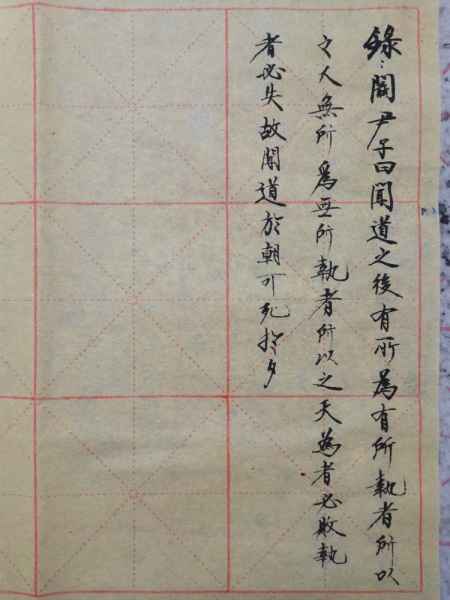 錄：關尹子曰聞道之後有所為有所執者所以
之人無所為無所執者所以之天為者必敗執
者必失故聞道於朝可死於夕